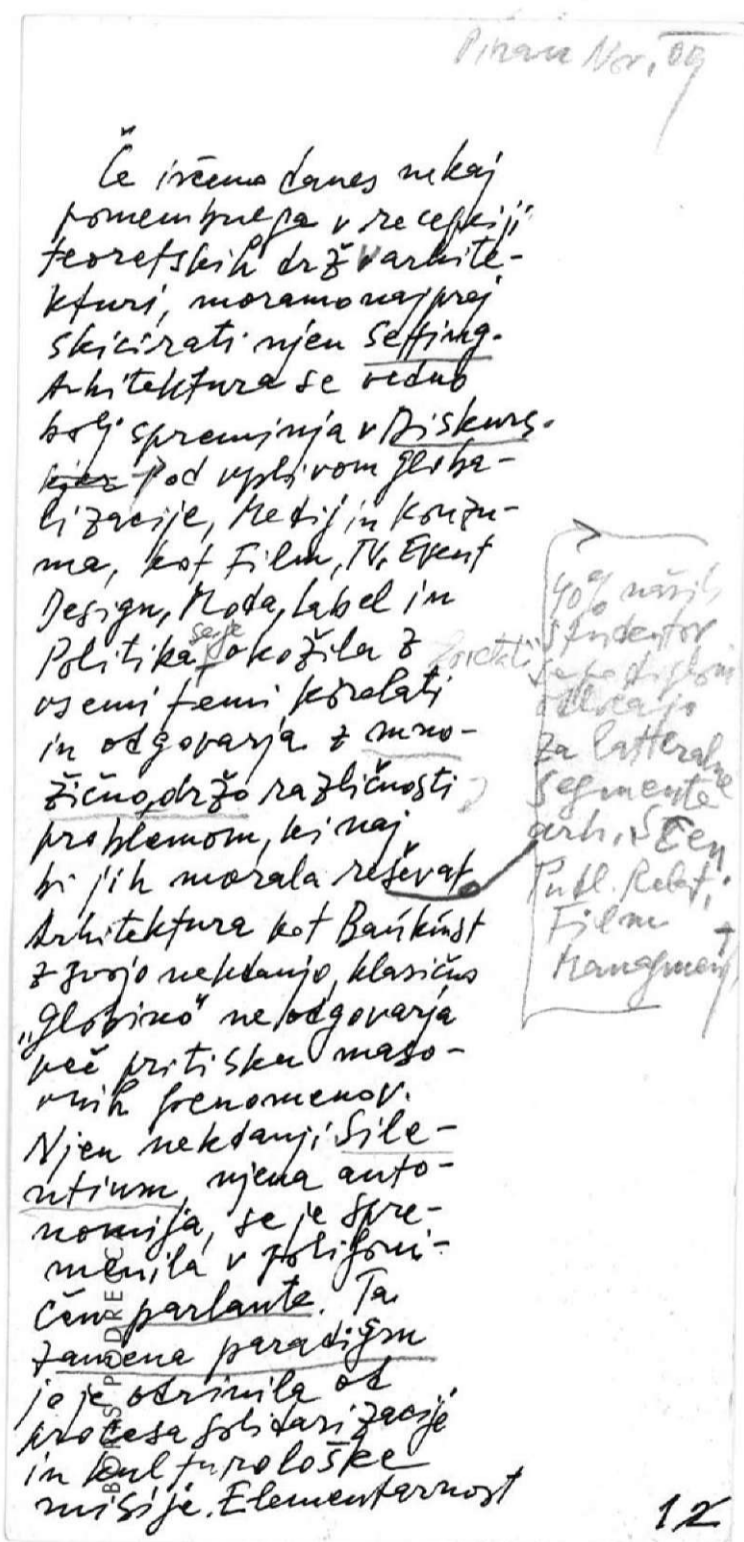 Piran Nov. 09
Če iščemo danes nekaj
pomembnega v recepciji
teoretskih drž v arhite-
kturi, moramo najprej
skicirati njen Setting.
Arhitektura se vedno
bolj spreminja v Diskurs.
Pod vplivom globa-
lizacije, Medij in Konzu-
ma, kot Film, TV, Event
Design, Moda, Label in
Politika, se je okožila z
vsemi temi korelati
in odgovarja z mno-
žično držo različnosti
problemom, ki naj
bi jih morala reševat
Arhitektura kot Baukunst
z svojo nekdanjo, klasično
„globino“ ne odgovarja
več pritisku maso-
vnih fenomenov.
Njen nekdanji Sile-
ntium, njena avto-
nomija, se je spre-
menila v polifoni-
čen parlante. Ta
zamena paradigm
jo je odrinila od
procesa solidarizacije
in kulturološke
misije. Elementarnost
40% naših
študentov
se po diplomi
odločajo
za lateralne
segmente
arh., Scen,
Publ. Relat.,
Film +
Managment
BORIS PODRECCA
12